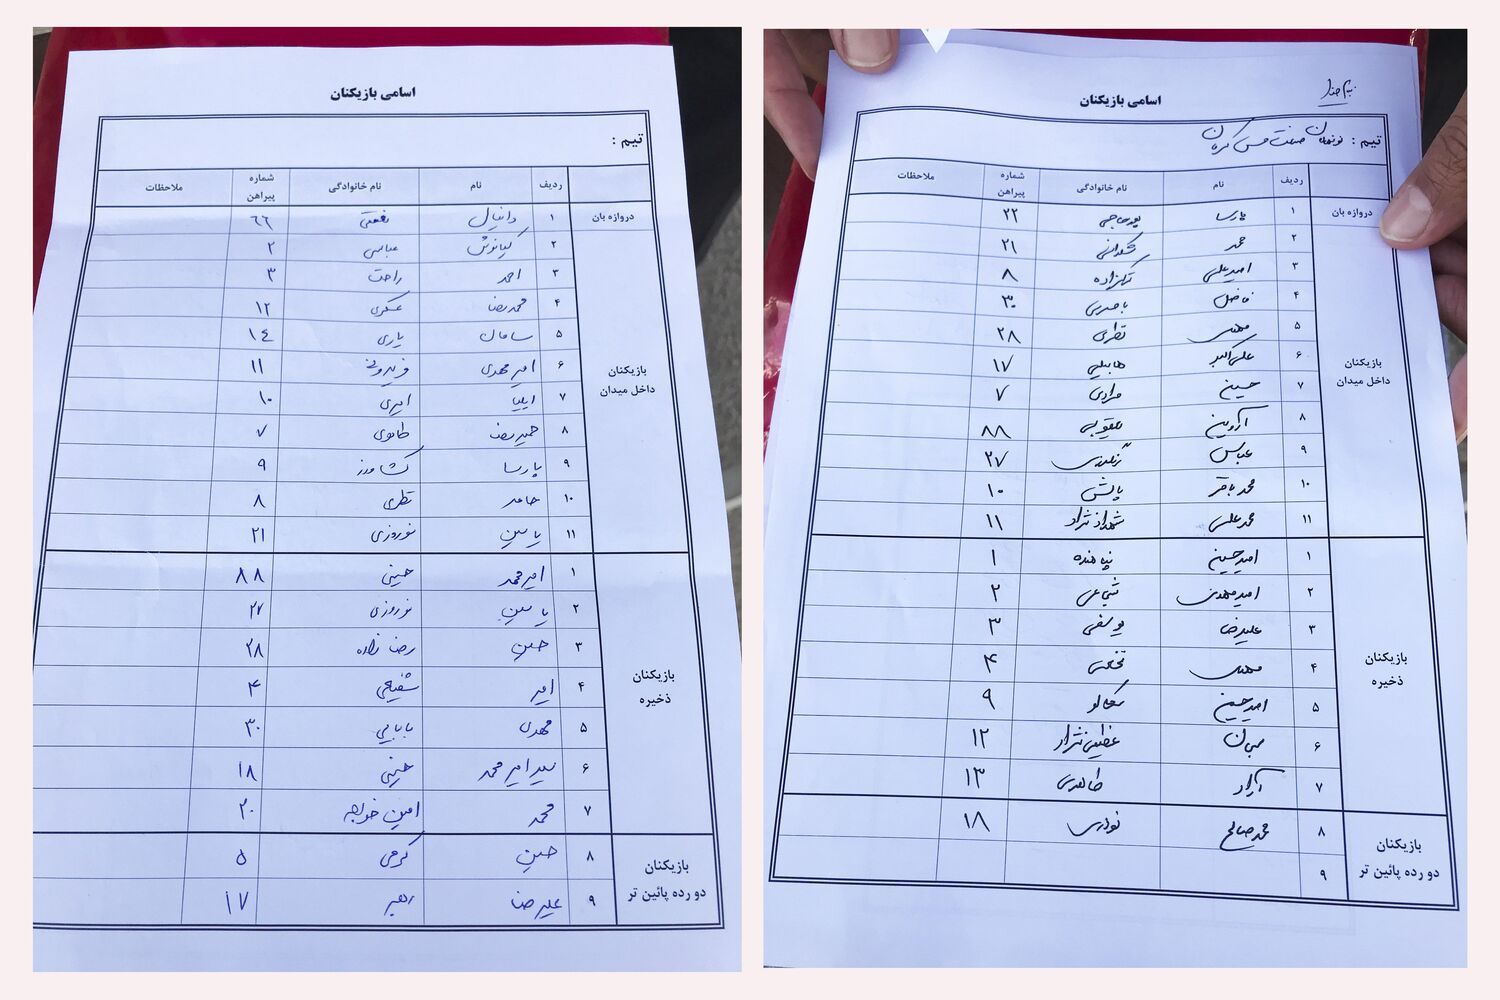 اسامی بازیکنان
تیم :
ردیف نام نام خانوادگی شماره پیراهن ملاحظات
دروازه بان
۱ دانیال نعمتی ۶۶
بازیکنان داخل میدان
۲ کیانوش عباسی ۲
۳ احمد راحت ۳
۴ محمدرضا عسکری ۱۲
۵ سامان یاری ۱٤
۶ امیرمهدی فریدونی ۱۱
۷ ایلیا امیری ۱۰
۸ حمیدرضا طاوسی ۷
۹ پارسا کشاورز ۹
۱۰ حامد نظری ۸
۱۱ یاسین نوروزی ۲۱
بازیکنان ذخیره
۱ امیرمحمد حسینی ۸۸
۲ یاسین نوروزی ۲۷
۳ حسین رضازاده ۳۸
۴ امیر شفیعی ۴
۵ مهدی بابایی ۳۰
۶ سید امیرمحمد حسینی ۱۸
۷ محمد امین خواجه ۲۰
بازیکنان دو رده پائین تر
۸ حسین کرمی ۵
۹ علیرضا ۱۷
اسامی بازیکنان
تیم : نونهالان صنعت مس کرمان
ردیف نام نام خانوادگی شماره پیراهن ملاحظات
دروازه بان
۱ پارسا پورحاجی ۲۲
بازیکنان داخل میدان
۲ محمد ۲۱
۳ امیرعلی ۸
۴ فاضل باصری ۳۰
۵ مهدی نظری ۲۸
۶ علی اکبر هابیلی ۱۷
۷ حسین مرادی ۷
۸ آروین یعقوبی ۸۸
۹ عباس ۲۷
۱۰ محمدباقر ۱۰
۱۱ محمدعلی شمداد نژاد ۱۱
بازیکنان ذخیره
۱ امیرحسین پناهنده ۱
۲ امیرمهدی شجاعی ۲
۳ علیرضا یوسفی ۳
۴ مهدی نخعی ۴
۵ امیرحسین ۹
۶ سبحان عظیمی نژاد ۱۲
۷ آراد طاهری ۱۳
بازیکنان دو رده پائین تر
۸ محمد صالح نوذری ۱۸
۹